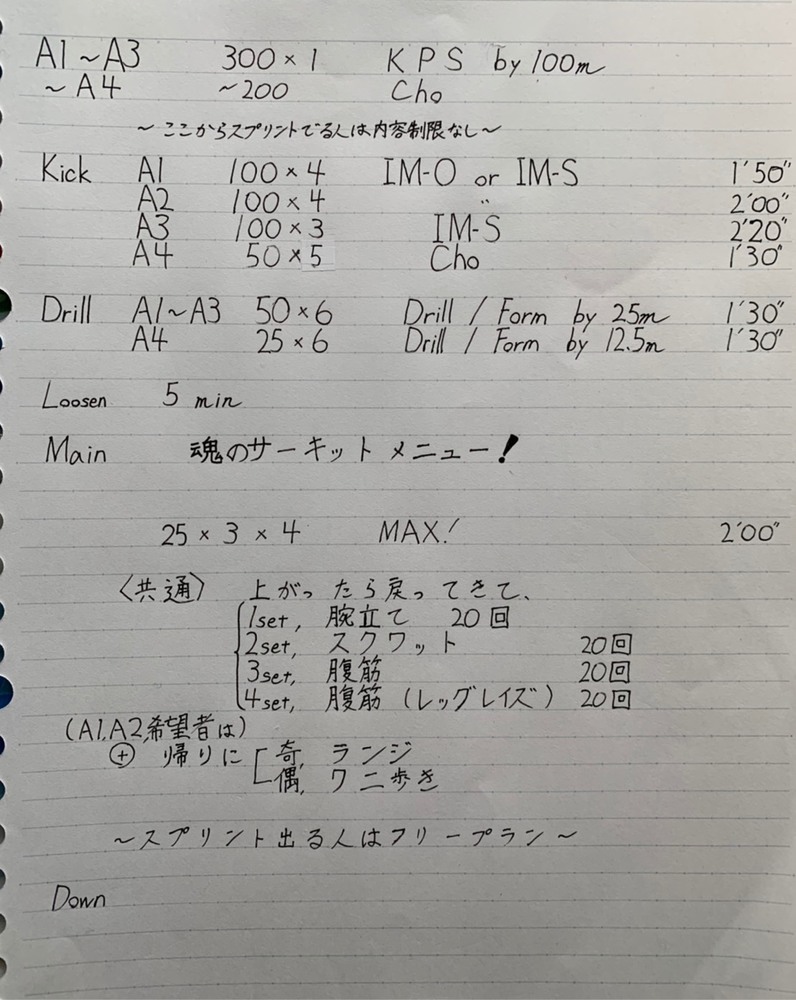 A1～A3 300×1 KPS by 100m
～A4 ～200 Cho
～ここからスプリントでる人は内容制限なし～
Kick A1 100×4 IM-O or IM-S 1'50"
A2 100×4 〃 2'00"
A3 100×3 IM-S 2'20"
A4 50×5 Cho 1'30"
Drill A1～A3 50×6 Drill / Form by 25m 1'30"
A4 25×6 Drill / Form by 12.5m 1'30"
Loosen 5 min
Main 魂のサーキットメニュー!
25×3×4 MAX! 2'00"
〈共通〉 上がったら戻ってきて、
1set, 腕立て 20回
2set, スクワット 20回
3set, 腹筋 20回
4set, 腹筋(レッグレイズ) 20回
(A1,A2,希望者は)
⊕ 帰りに 奇, ランジ
偶, ワニ歩き
～スプリント出る人はフリープラン～
Down